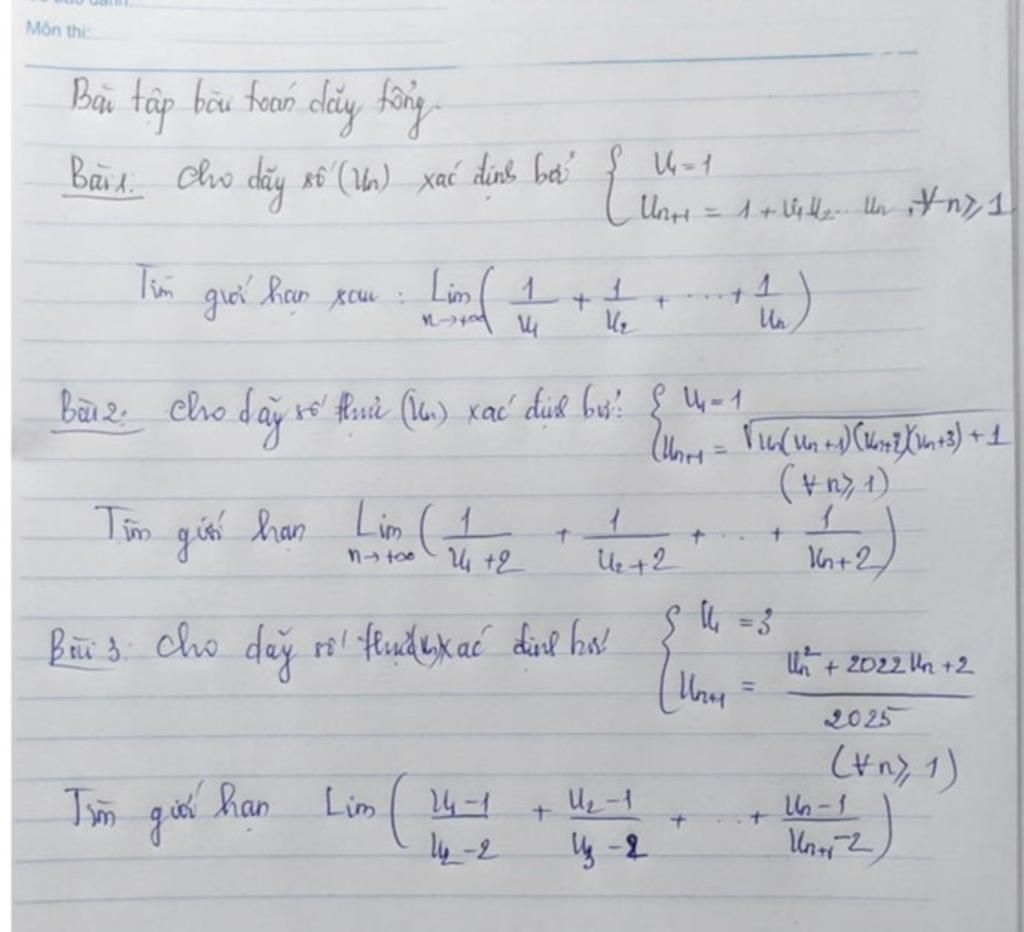 Môn thi:
Bài tập bài toán dãy tổng.
Bài 1: Cho dãy số (Un) xác định bởi { U1 = 1
Un+1 = 1 + U1U2... Un, ∀ n ≥ 1
Tìm giới hạn sau: Lim n→+∞ ( 1/U1 + 1/U2 + ... + 1/Un )
Bài 2: Cho dãy số thực (Un) xác định bởi: { U1 = 1
Un+1 = √(Un(Un+1)(Un+2)(Un+3) + 1)
(∀ n ≥ 1)
Tìm giới hạn Lim n→+∞ ( 1/(U1+2) + 1/(U2+2) + ... + 1/(Un+2) )
Bài 3: Cho dãy số thực (Un) xác định bởi { U1 = 3
Un+1 = (Un² + 2022Un + 2)/2025
(∀ n ≥ 1)
Tìm giới hạn Lim ( (U1-1)/(U2-2) + (U2-1)/(U3-2) + ... + (Un-1)/(Un+1-2) )